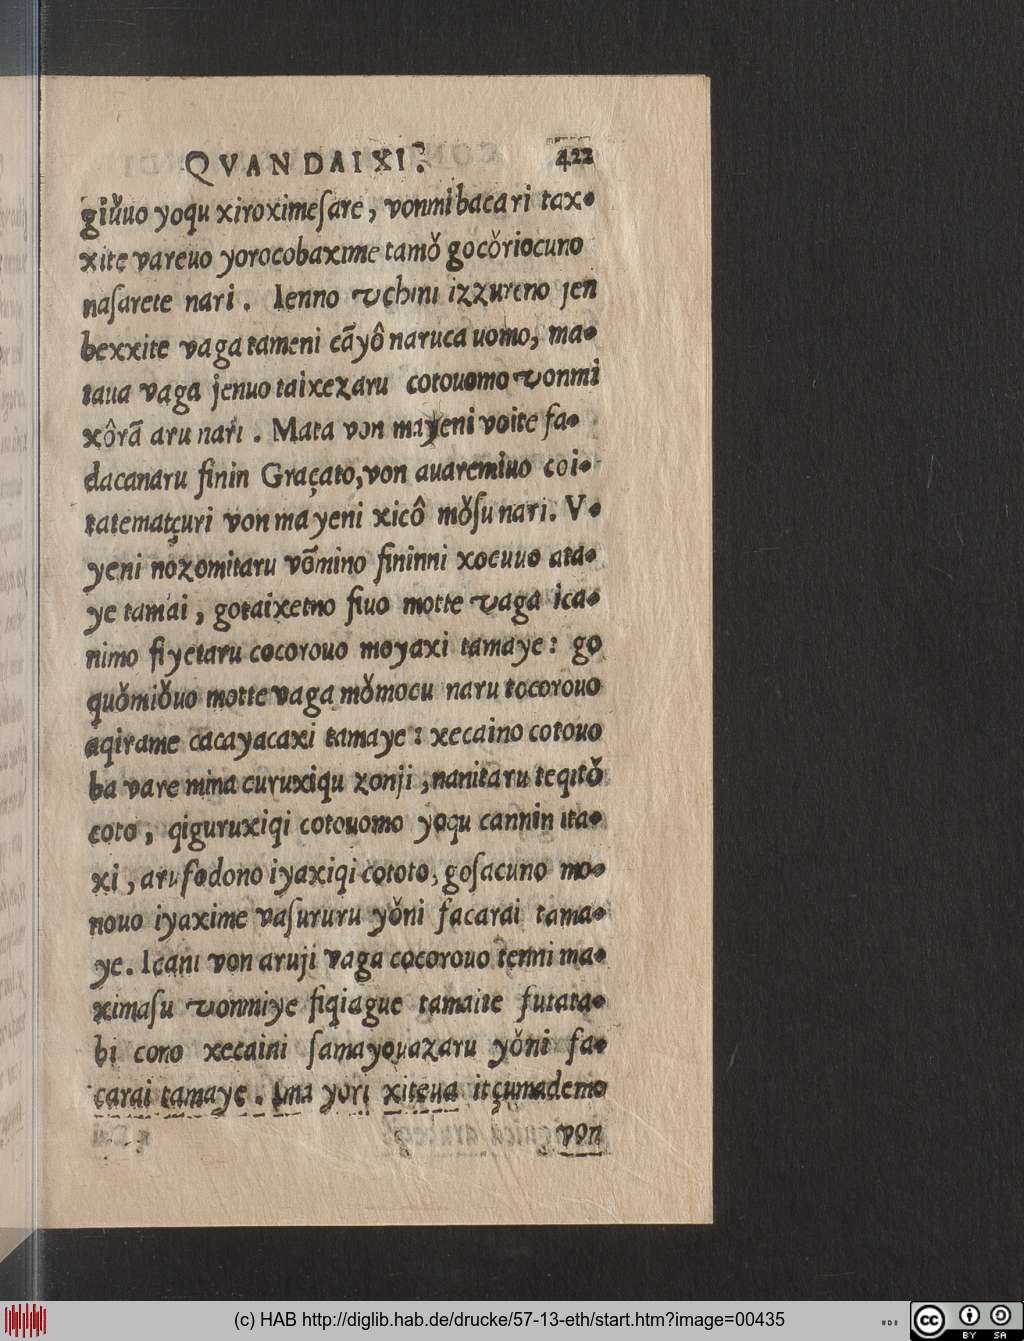 QVANDAIXI? 422
giǔuo yoqu xiroximeſare, vonmi bacari tax-
xite vareuo yorocobaxime tamǒ gocǒriocuno
naſarete nari. Ienno vchini izzureno jen
bexxite vaga tameni cãyô naruca uomo, ma-
taua vaga jenuo taixezaru cotouomo vonmi
xôrã aru nari. Mata von mayeni voite fa-
dacanaru finin Graçato, von auaremiuo coi-
tatematçuri von mayeni xicô mǒſu nari. V-
yeni nozomitaru võmino fininni xocuuo ata-
ye tamai, gotaixetno fiuo motte vaga ica-
nimo fiyetaru cocorouo moyaxi tamaye: go
quǒmiǒuo motte vaga mǒmocu naru tocorouo
aqirame cacayacaxi tamaye: xecaino cotouo
ba vare mina curuxiqu zonji, nanitaru teqitǒ
coto, qiguruxiqi cotouomo yoqu cannin ita-
xi, aru fodono iyaxiqi cototo, goſacuno mo-
nouo iyaxime vaſururu yǒni facarai tama-
ye. Icani von aruji vaga cocorouo tenni ma-
ximaſu vonmiye fiqiague tamaite futata-
bi cono xecaini ſamayouazaru yǒni fa-
carai tamaye. Ima yori xiteua itçumademo
von
(c) HAB http://diglib.hab.de/drucke/57-13-eth/start.htm?image=00435
cc BY SA